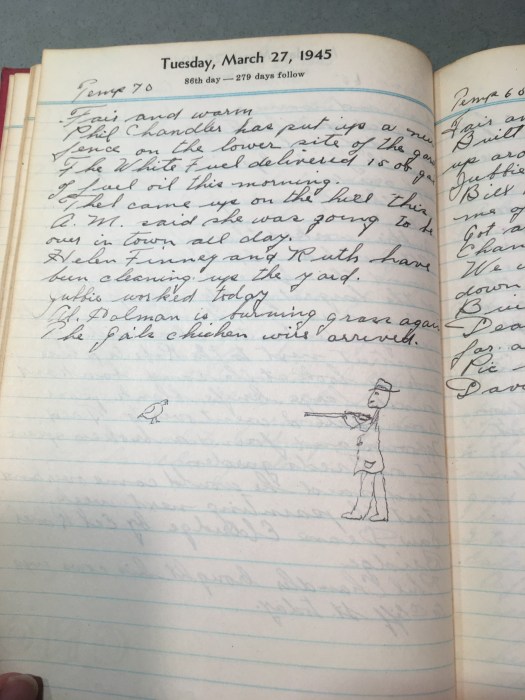 Tuesday, March 27, 1945
86th day — 279 days follow
Temp 70
Fair and warm
Phil Chandler has put up a new
fence on the lower site of the
The White Fuel delivered 15
of fuel oil this morning.
came up on the hill this
A. M. said she was going to be
over in town all day.
Helen Finney and Ruth have
been cleaning up the yard.
Jubbie worked today
Ed. Dolman is burning grass again
The Gals chicken wire arrived.
Temp 60
Fair an
Built
up aro
Jubbie
Bill
me
Got
Chan
We
down
Bui
Dea
for. a
Pic
Dav